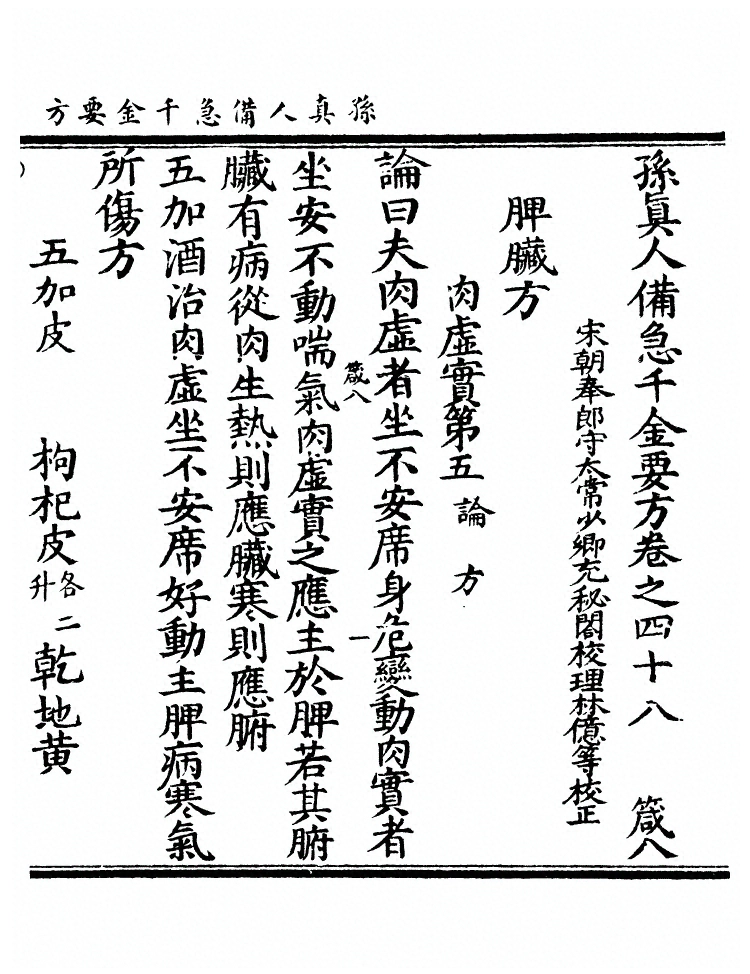 孫真人備急千金要方
孫眞人備急千金要方卷之四十八 箴八
宋朝奉郎守太常少卿充秘閣校理林億等校正
脾臟方
肉虛實第五 論 方
論曰夫肉虛者坐不安席身危變動肉實者
箴八 一
坐安不動喘氣肉虛實之應主於脾若其腑
臟有病從肉生熱則應臟寒則應腑
五加酒治肉虛坐不安席好動主脾病寒氣
所傷方
五加皮 枸杞皮各二升 乾地黄